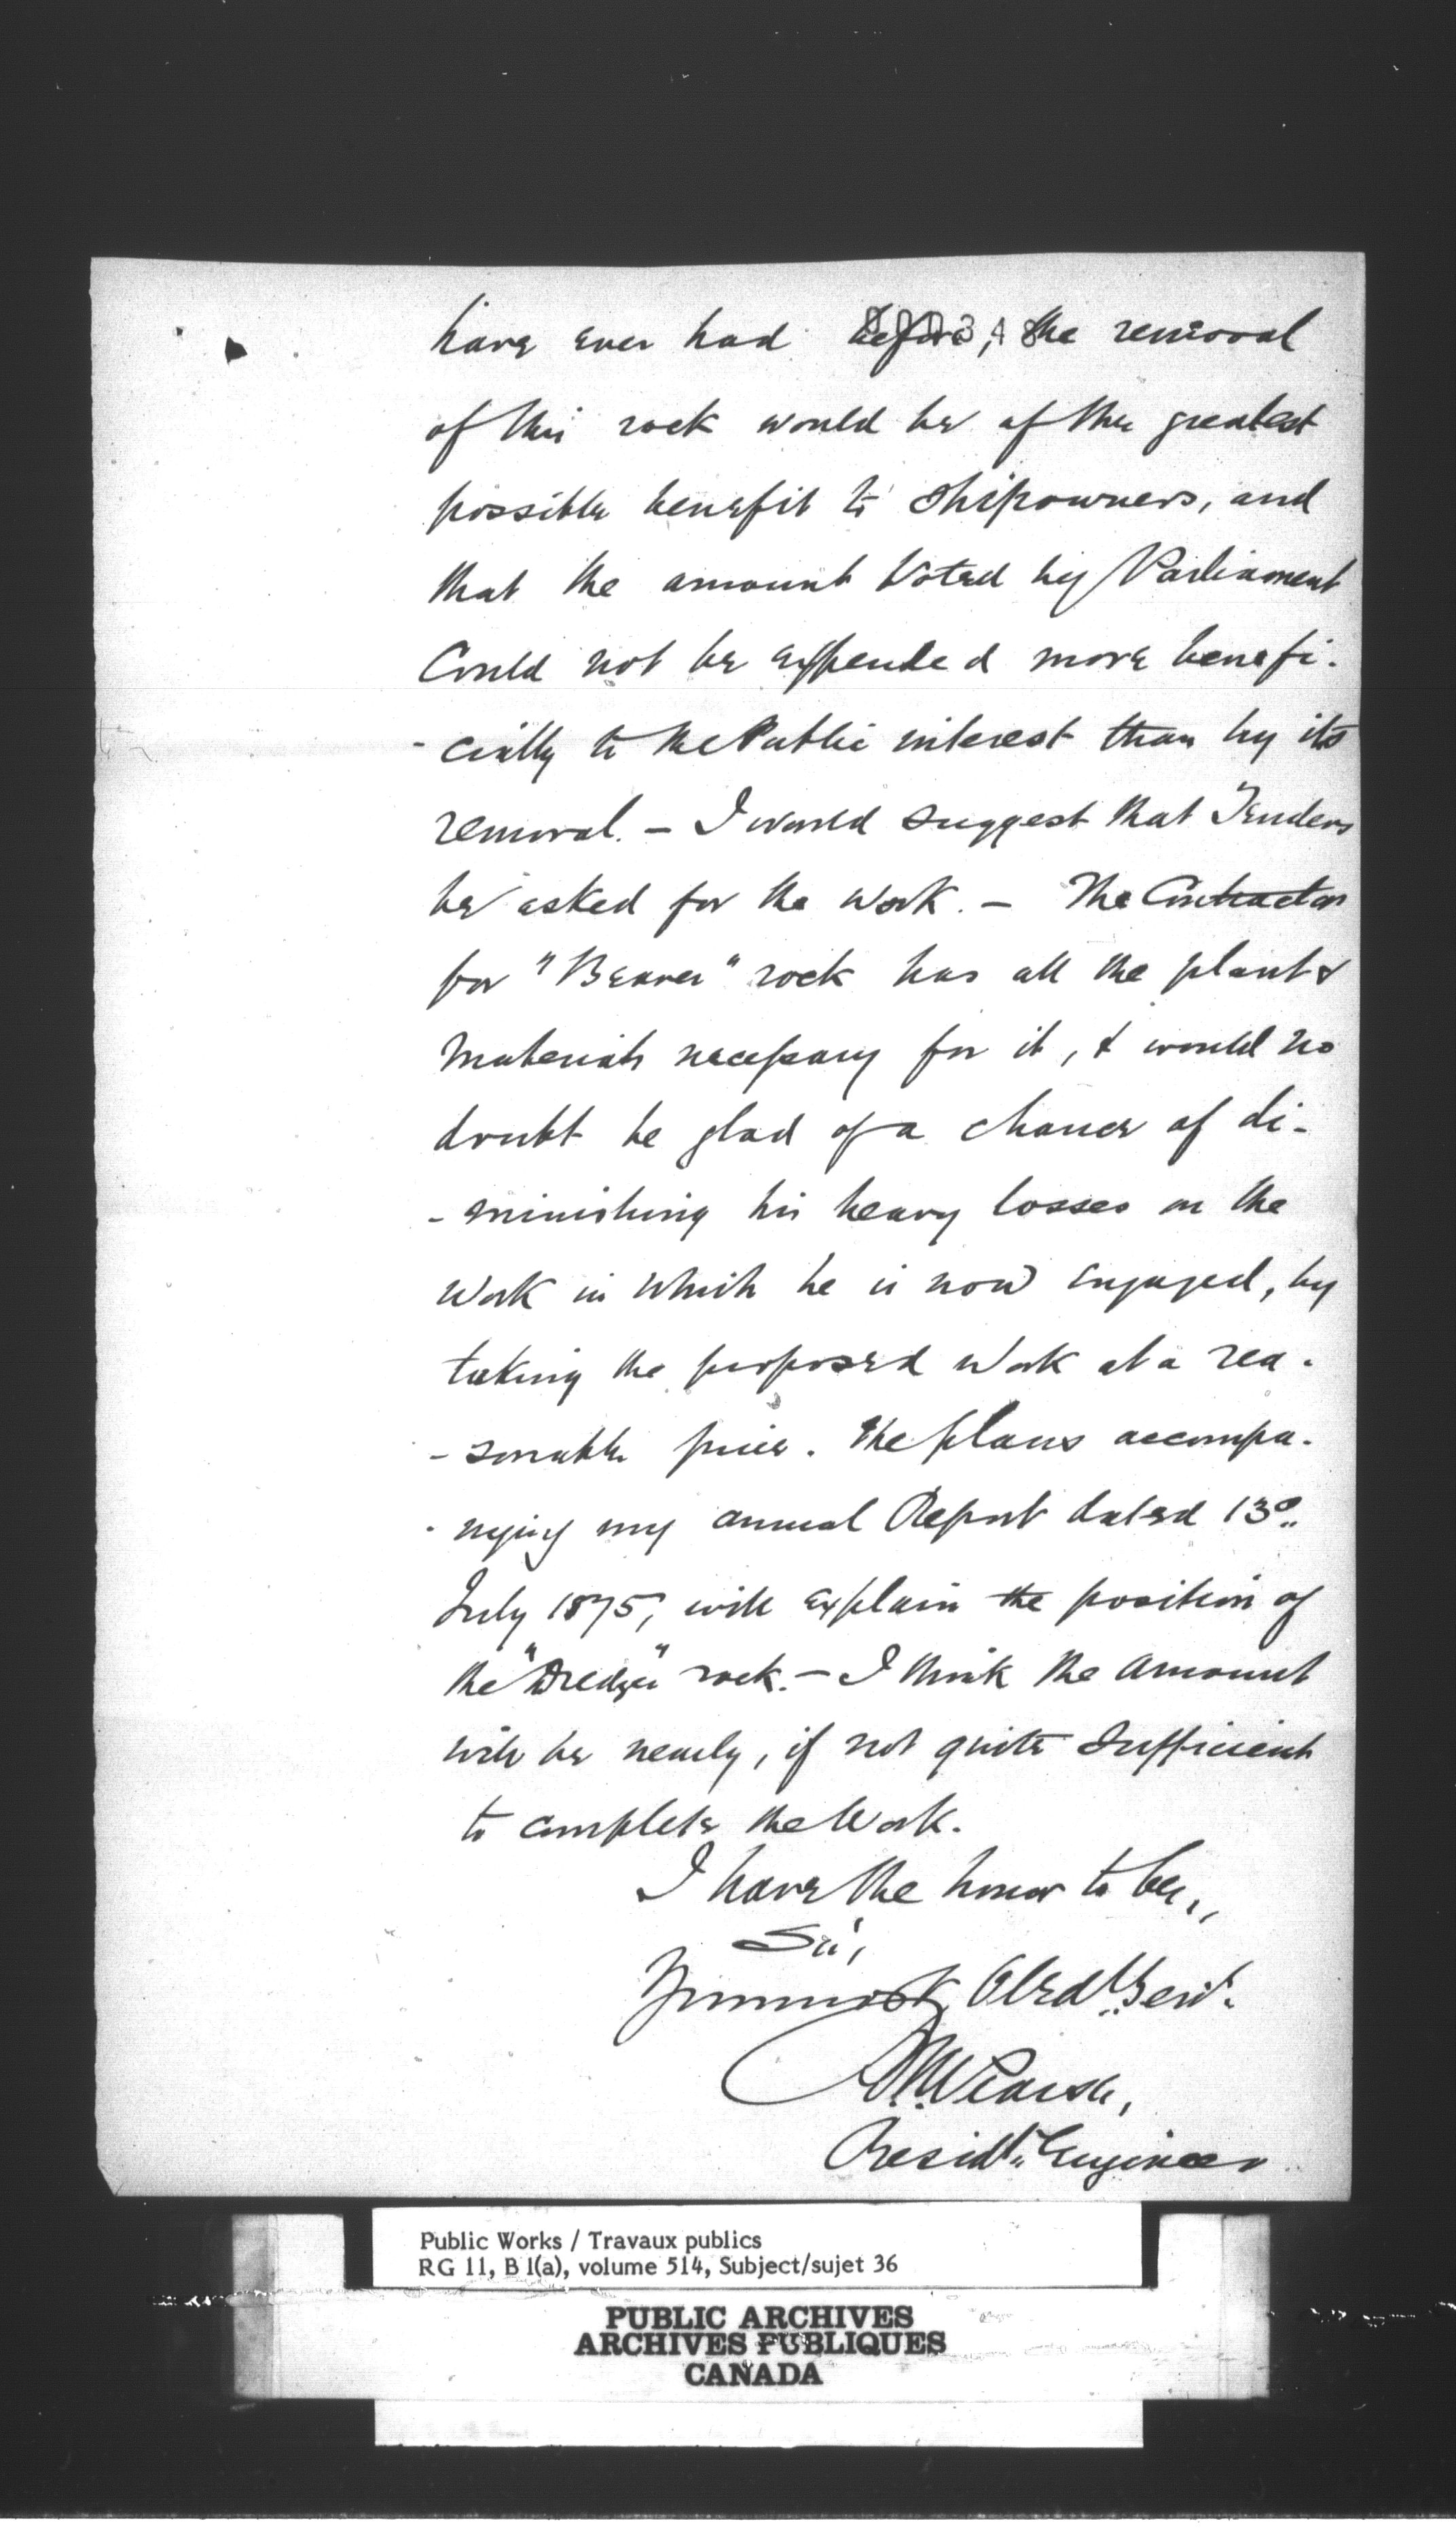 have ever had before, the removal
of this rock would be of the greatest
possible benefit to Shipowners, and
that the amount Voted by Parliament
Could not be expended more benefi-
-cially to the Public interest than by its
removal. – I would suggest that Tenders
be asked for the work. – The Contractor
for "Beaver" rock has all the plant &
Materials necessary for it, & would no
doubt be glad of a chance of di-
-minishing his heavy losses on the
Work in which he is now engaged, by
taking the proposed Work at a rea-
-sonable price. The plans accompa-
-nying my annual Report dated 13th
July 1875, will explain the position of
the "Dredger" rock. – I think the Amount
will be nearly, if not quite Sufficient
to complete the Work.
I have the honor to be,
Sir,
Your most Obedt. Servt.
Pearse,
Residt. Engineer
Public Works / Travaux publics
RG 11, B 1(a), volume 514, Subject/sujet 36
PUBLIC ARCHIVES
ARCHIVES PUBLIQUES
CANADA